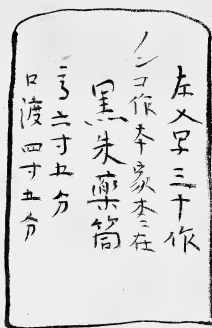 左乂早三十作
ノンコ作本家本ニ在
黒朱藥筒
高六寸五分
口渡四寸五分